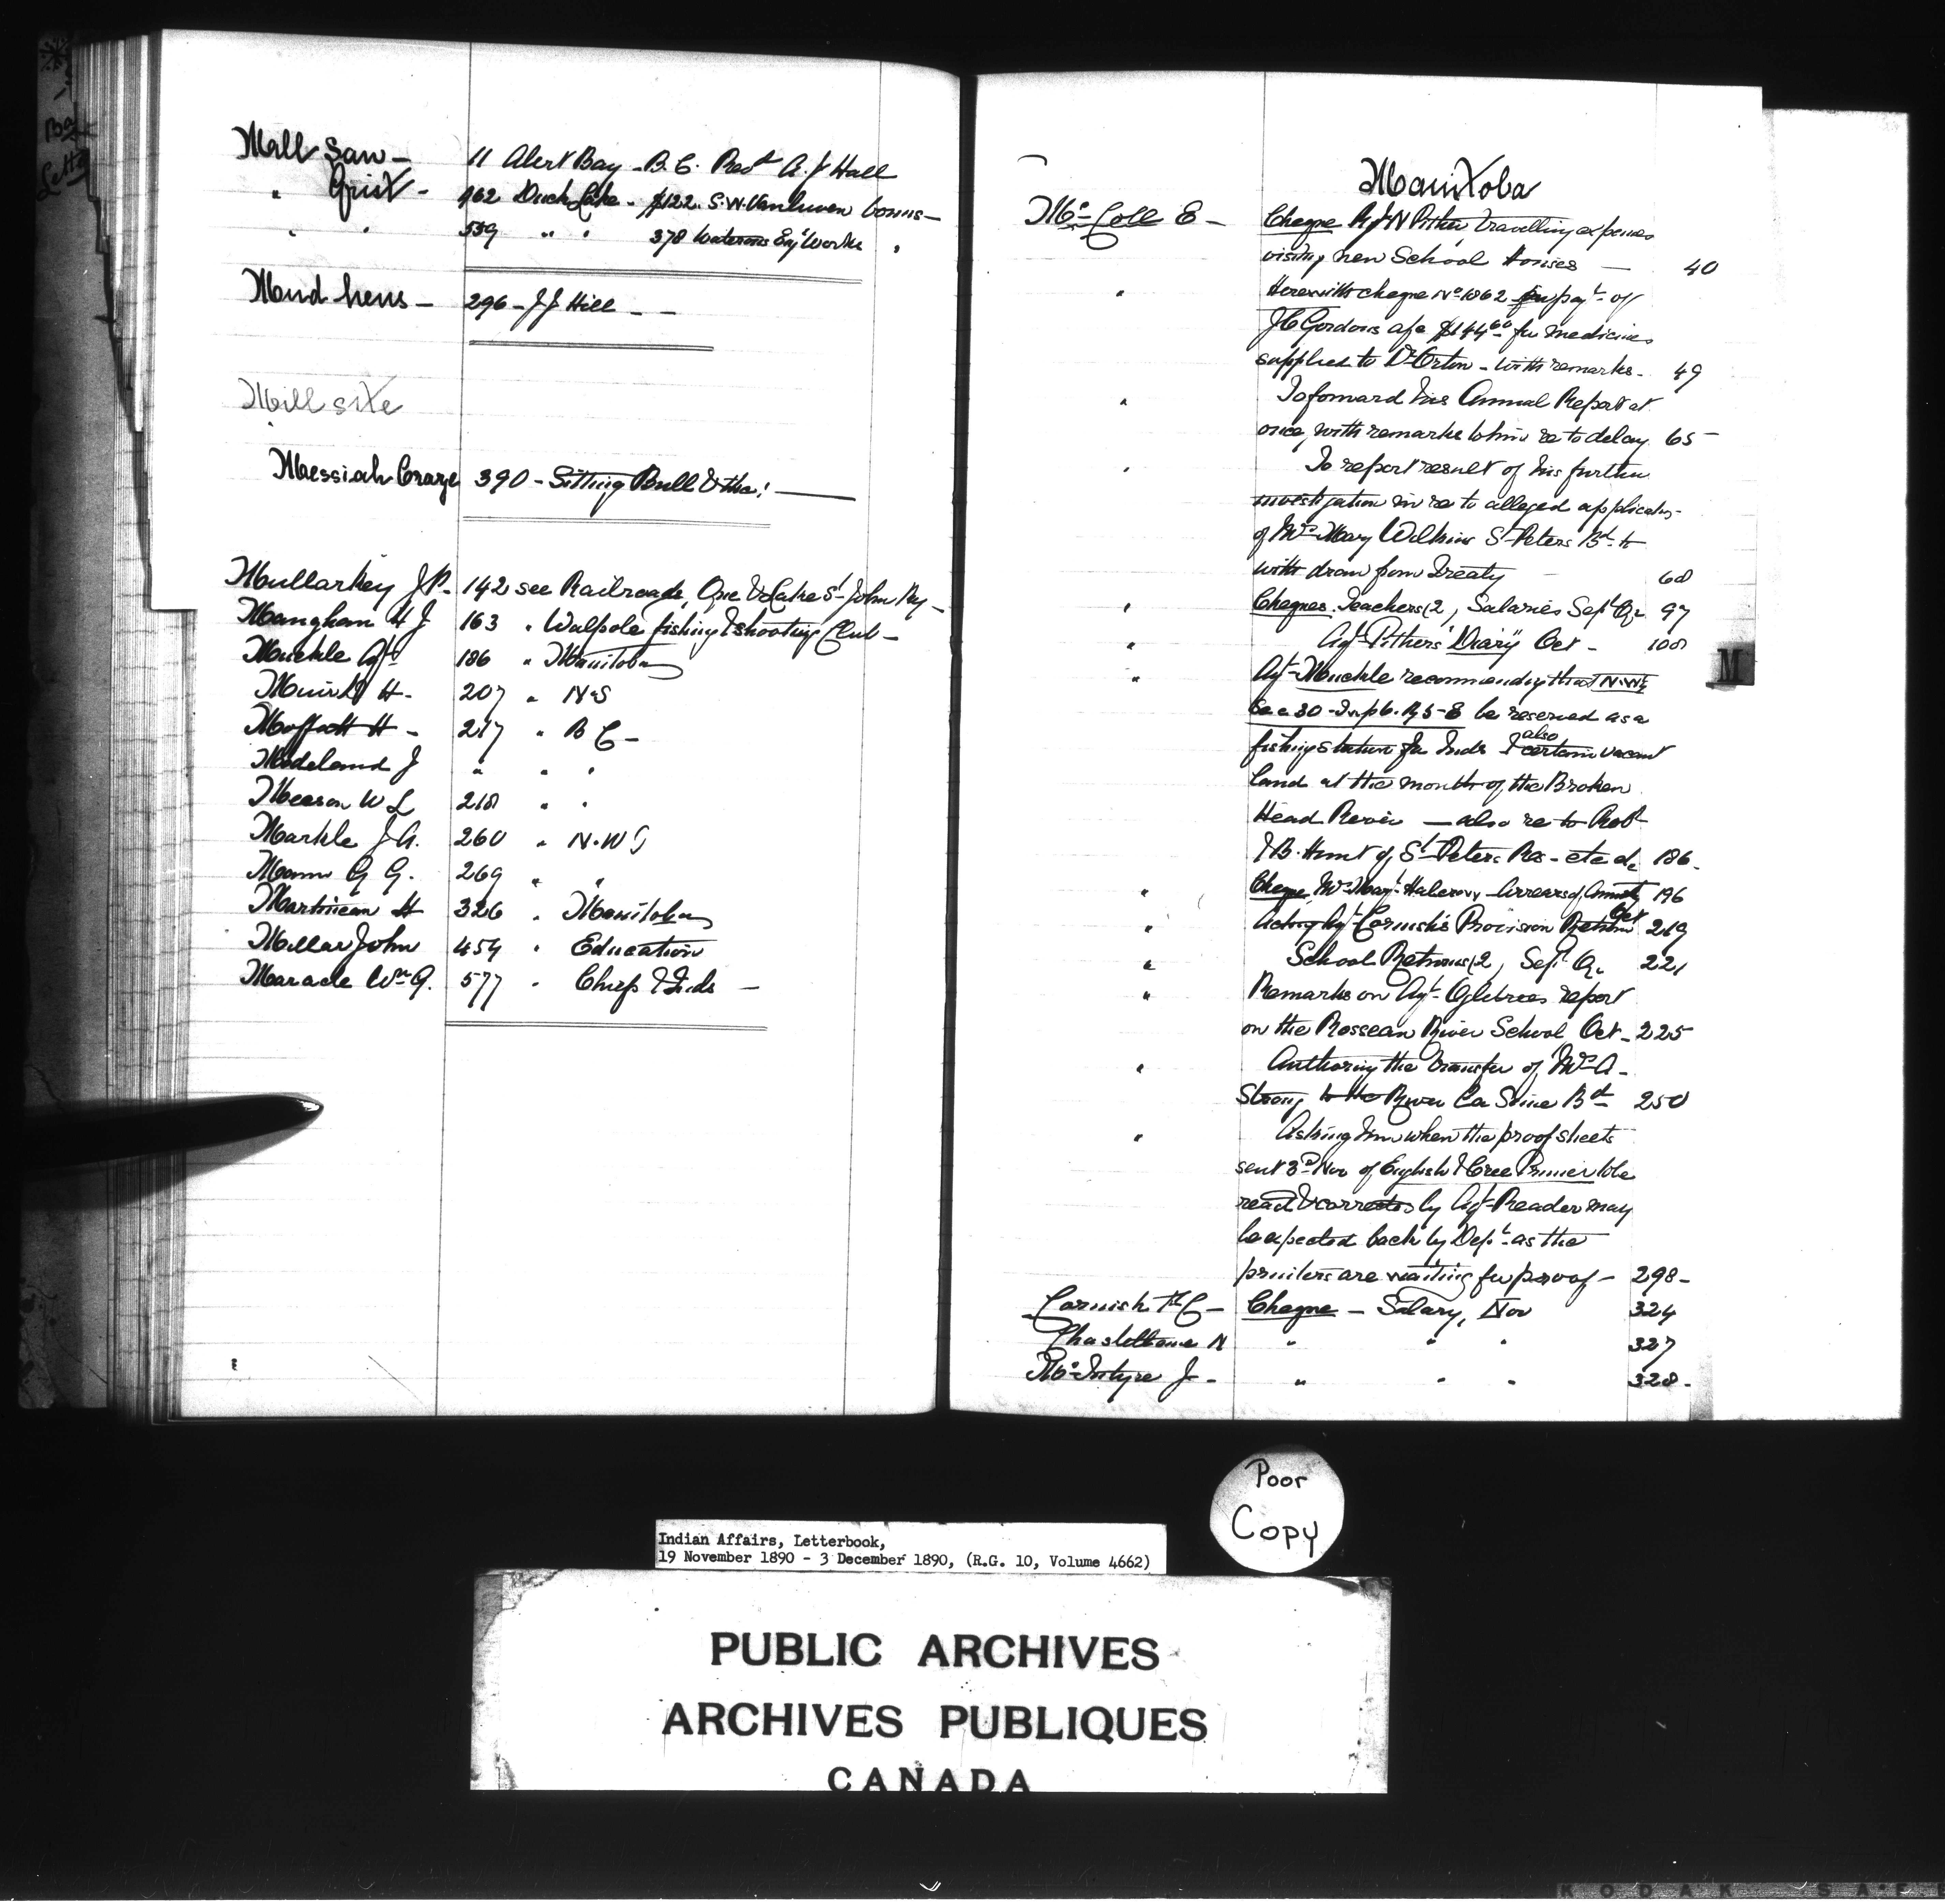 Mill Saw - 11 Alert Bay - B.C. Revd A. J Hall
" Grist - 462 Duck Lake - $122. S.W. Vanluven bonus -
" " 559 " " 378 Waterous Eng Works "
Mud hens - 296 - J J Hill - -
Mill site
Messiah Craze 390 - Sitting Bull & othrs
Mullarkey J P. 142 see Railroads, Que & Lake St John Ry -
Mangham H J 163 " Walpole fishing & shooting Club -
Muckle Agt 186 " Manitoba
Muir D H - 207 " N S
Moffatt H - 217 " B C -
Modeland J " " "
Meason W L 218 " "
Markle J A. 260 " N. W T
Mann G G. 269 " "
Martineau H 326 " Manitoba
Millar John 454 " Education
Maracle Wm G. 577 " Chiefs & Inds -
Manitoba
Mc Coll E - Cheque R J N Pither travelling expenses
visiting new School Houses - 40
" Herewith cheque No 1862 for payt of
J C Gordons a/c $144 60 for medicines
supplied to Dr Orton - with remarks - 49
" To forward his Annual Report at
once, with remarks to him re to delay 65 -
" To report result of his further
investigation in re to alleged applicatn
of Mrs Mary Wilkins St Peters Bd to
withdraw from Treaty 68
" Cheques. Teachers (2, Salaries Sept Qr 97
" Agt Pithers' Diary Oct - 108
" Agt Muckle recommending that N.W¼
Sec 30 - Tnsp 6. R 5 - E be reserved as a
fishing station for Inds & also certain vacant
land at the mouth of the Broken
Head River - also re to Robt
& B. Hunt of St Peters Res - etc etc 186 -
" Cheque, Mrs Mary Halcrow, Arrears of Annuity 196
" Acting Agt Cornish's Provision Return Oct 219
" School Returns (2, Sept Qr 221
" Remarks on Agt Ogletrees report
on the Rosseau River School, Oct - 225
" Authoring the transfer of Mrs A -
Strong to the River La Seine Bd 250
" Asking him when the proof sheets
sent 3rd Nov of English & Cree Primier to be
read & corrected by Agt Reader may
be expected back by Dept as the
printers are waiting for proof - 298 -
Cornish F C - Cheque - Salary, Nov 324
Chastellaine N " " " 327
Mc Intyre J - " " " 328 -
M
Poor
Copy
Indian Affairs, Letterbook,
19 November 1890 - 3 December 1890, (R.G. 10, Volume 4662)
PUBLIC ARCHIVES
ARCHIVES PUBLIQUES
CANADA
KODAK SAFE